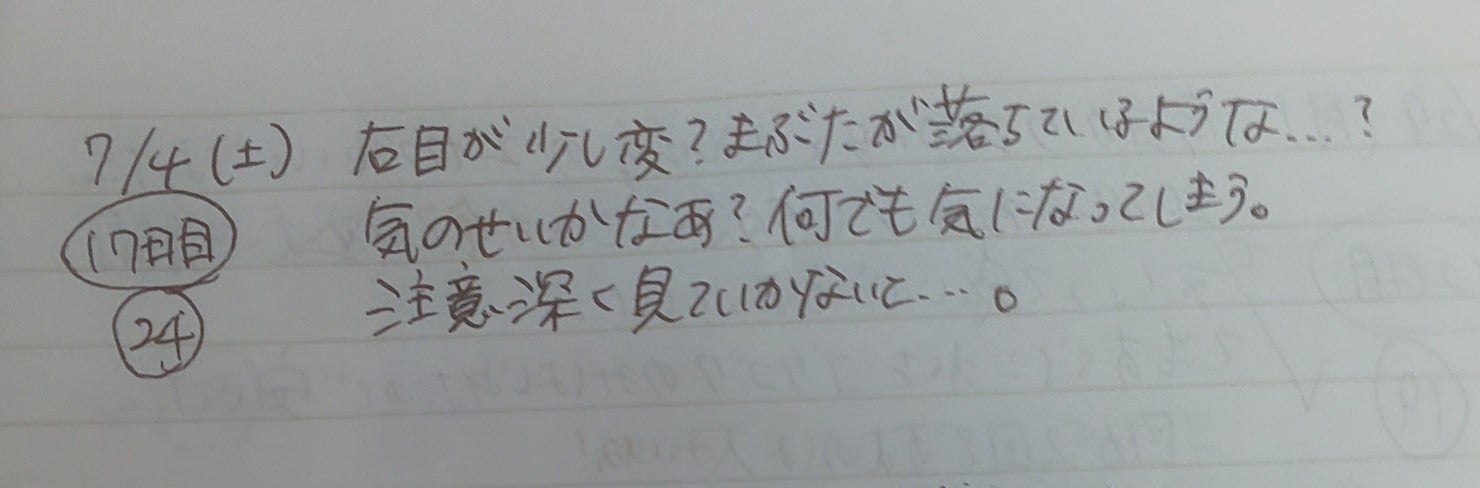 7/4(土) 右目が少し変?まぶたが落ちているような...?
17日目 気のせいかなあ?何でも気になってしまう。
24 注意深く見ていかないと...。